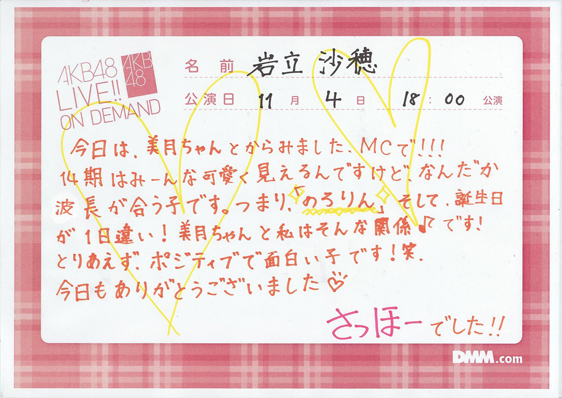 AKB48
LIVE!!
ON DEMAND
AKB
48
名前 岩立 沙穂
公演日 11月 4日 18:00 公演
今日は、美月ちゃんとからみました、MCで!!!
14期はみーんな可愛く見えるんですけど、なんだか
波長が合う子です。つまり、「のろりん」そして、誕生日
が1日違い!美月ちゃんと私はそんな関係♪です!
とりあえず、ポジティブで面白い子です!笑.
今日もありがとうございました♡
さっほーでした!!
DMM.com